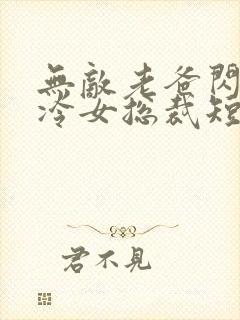 無敵老爸閃
冷女总裁短
君不見